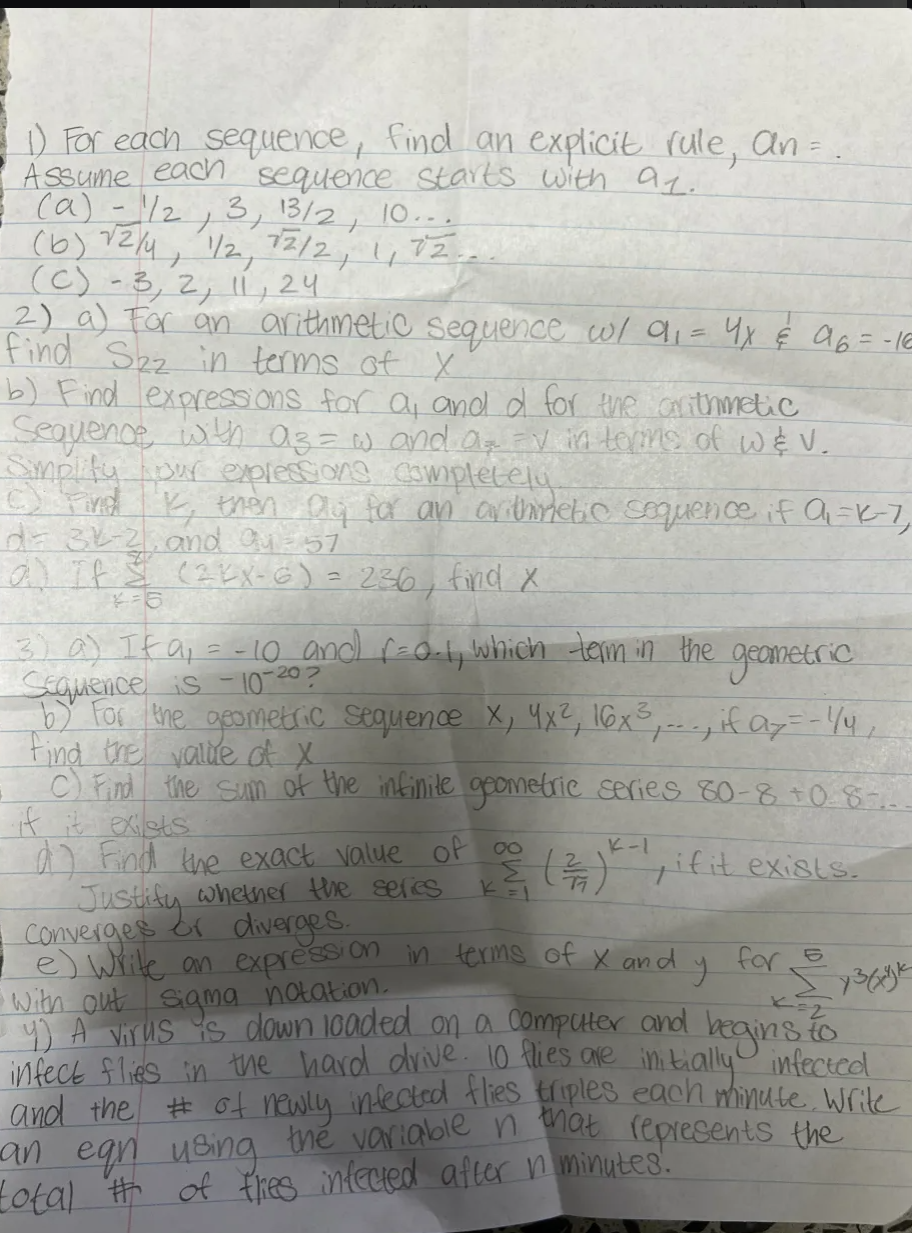 1) For each sequence, find an explicit rule, an = .
Assume each sequence starts with a1.
(a) - 1/2 , 3, 13/2 , 10...
(b) √2/4 , 1/2, √2/2, 1, √2...
(c) -3, 2, 11, 24
2) a) For an arithmetic sequence w/ a1 = 4x & a6 = -16
find S22 in terms of x
b) Find expressions for a1 and d for the arithmetic
Sequence with a3 = w and a7 = v in terms of w & v.
Simplify your expressions completely
c) Find k, then a9 for an arithmetic sequence if a1 = k-7,
d = 3k-2, and a4 = 57
d) If Σ k=5 (2kx-6) = 236, find x
3) a) If a1 = -10 and r=0.1, which term in the geometric
Sequence is -10^-20?
b) For the geometric sequence x, 4x², 16x³, ..., if a7 = -1/4,
find the value of x
c) Find the sum of the infinite geometric series 80-8+0.8-...
if it exists
d) Find the exact value of ∞ Σ k=1 (2/π)^k-1, if it exists.
Justify whether the series
converges or diverges.
e) Write an expression in terms of x and y for Σ k=2 y³(x⁴)^k
with out sigma notation.
4) A virus is downloaded on a computer and begins to
infect flies in the hard drive. 10 flies are initially infected
and the # of newly infected flies triples each minute. Write
an eqn using the variable n that represents the
total # of flies infected after n minutes.